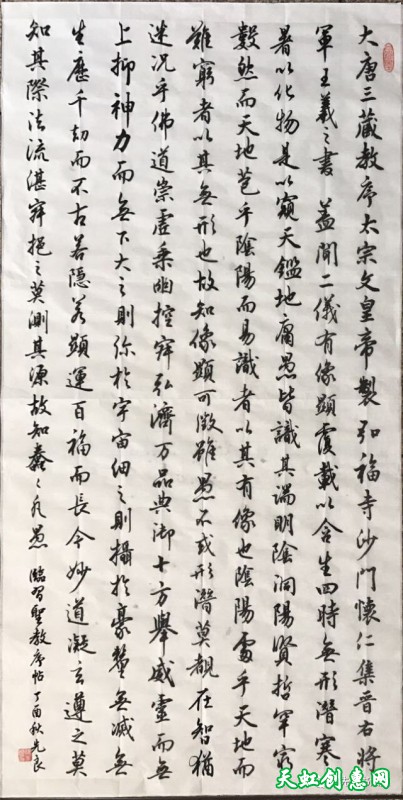 大唐三藏教序太宗文皇帝製弘福寺沙門懷仁集晉右將
軍王羲之書 蓋聞二儀有像顯覆載以含生四時無形潛寒
暑以化物是以窺天鑑地庸愚皆識其端明陰洞陽賢哲罕窮
數然而天地苞乎陰陽而易識者以其有像也陰陽處乎天地而
難窮者以其無形也故知像顯可徵雖愚不惑形潛莫覩在智猶
迷況乎佛道崇虛乘幽控寂弘濟万品典御十方舉威靈而無
上抑神力而無下大之則弥於宇宙細之則攝於豪釐無滅無
生歷千劫而不古若隱若顯運百福而長今妙道凝玄遵之莫
知其際法流湛寂挹之莫測其源故知蠢々凡愚 臨習聖教序帖 丁酉秋光良
天虹创意网